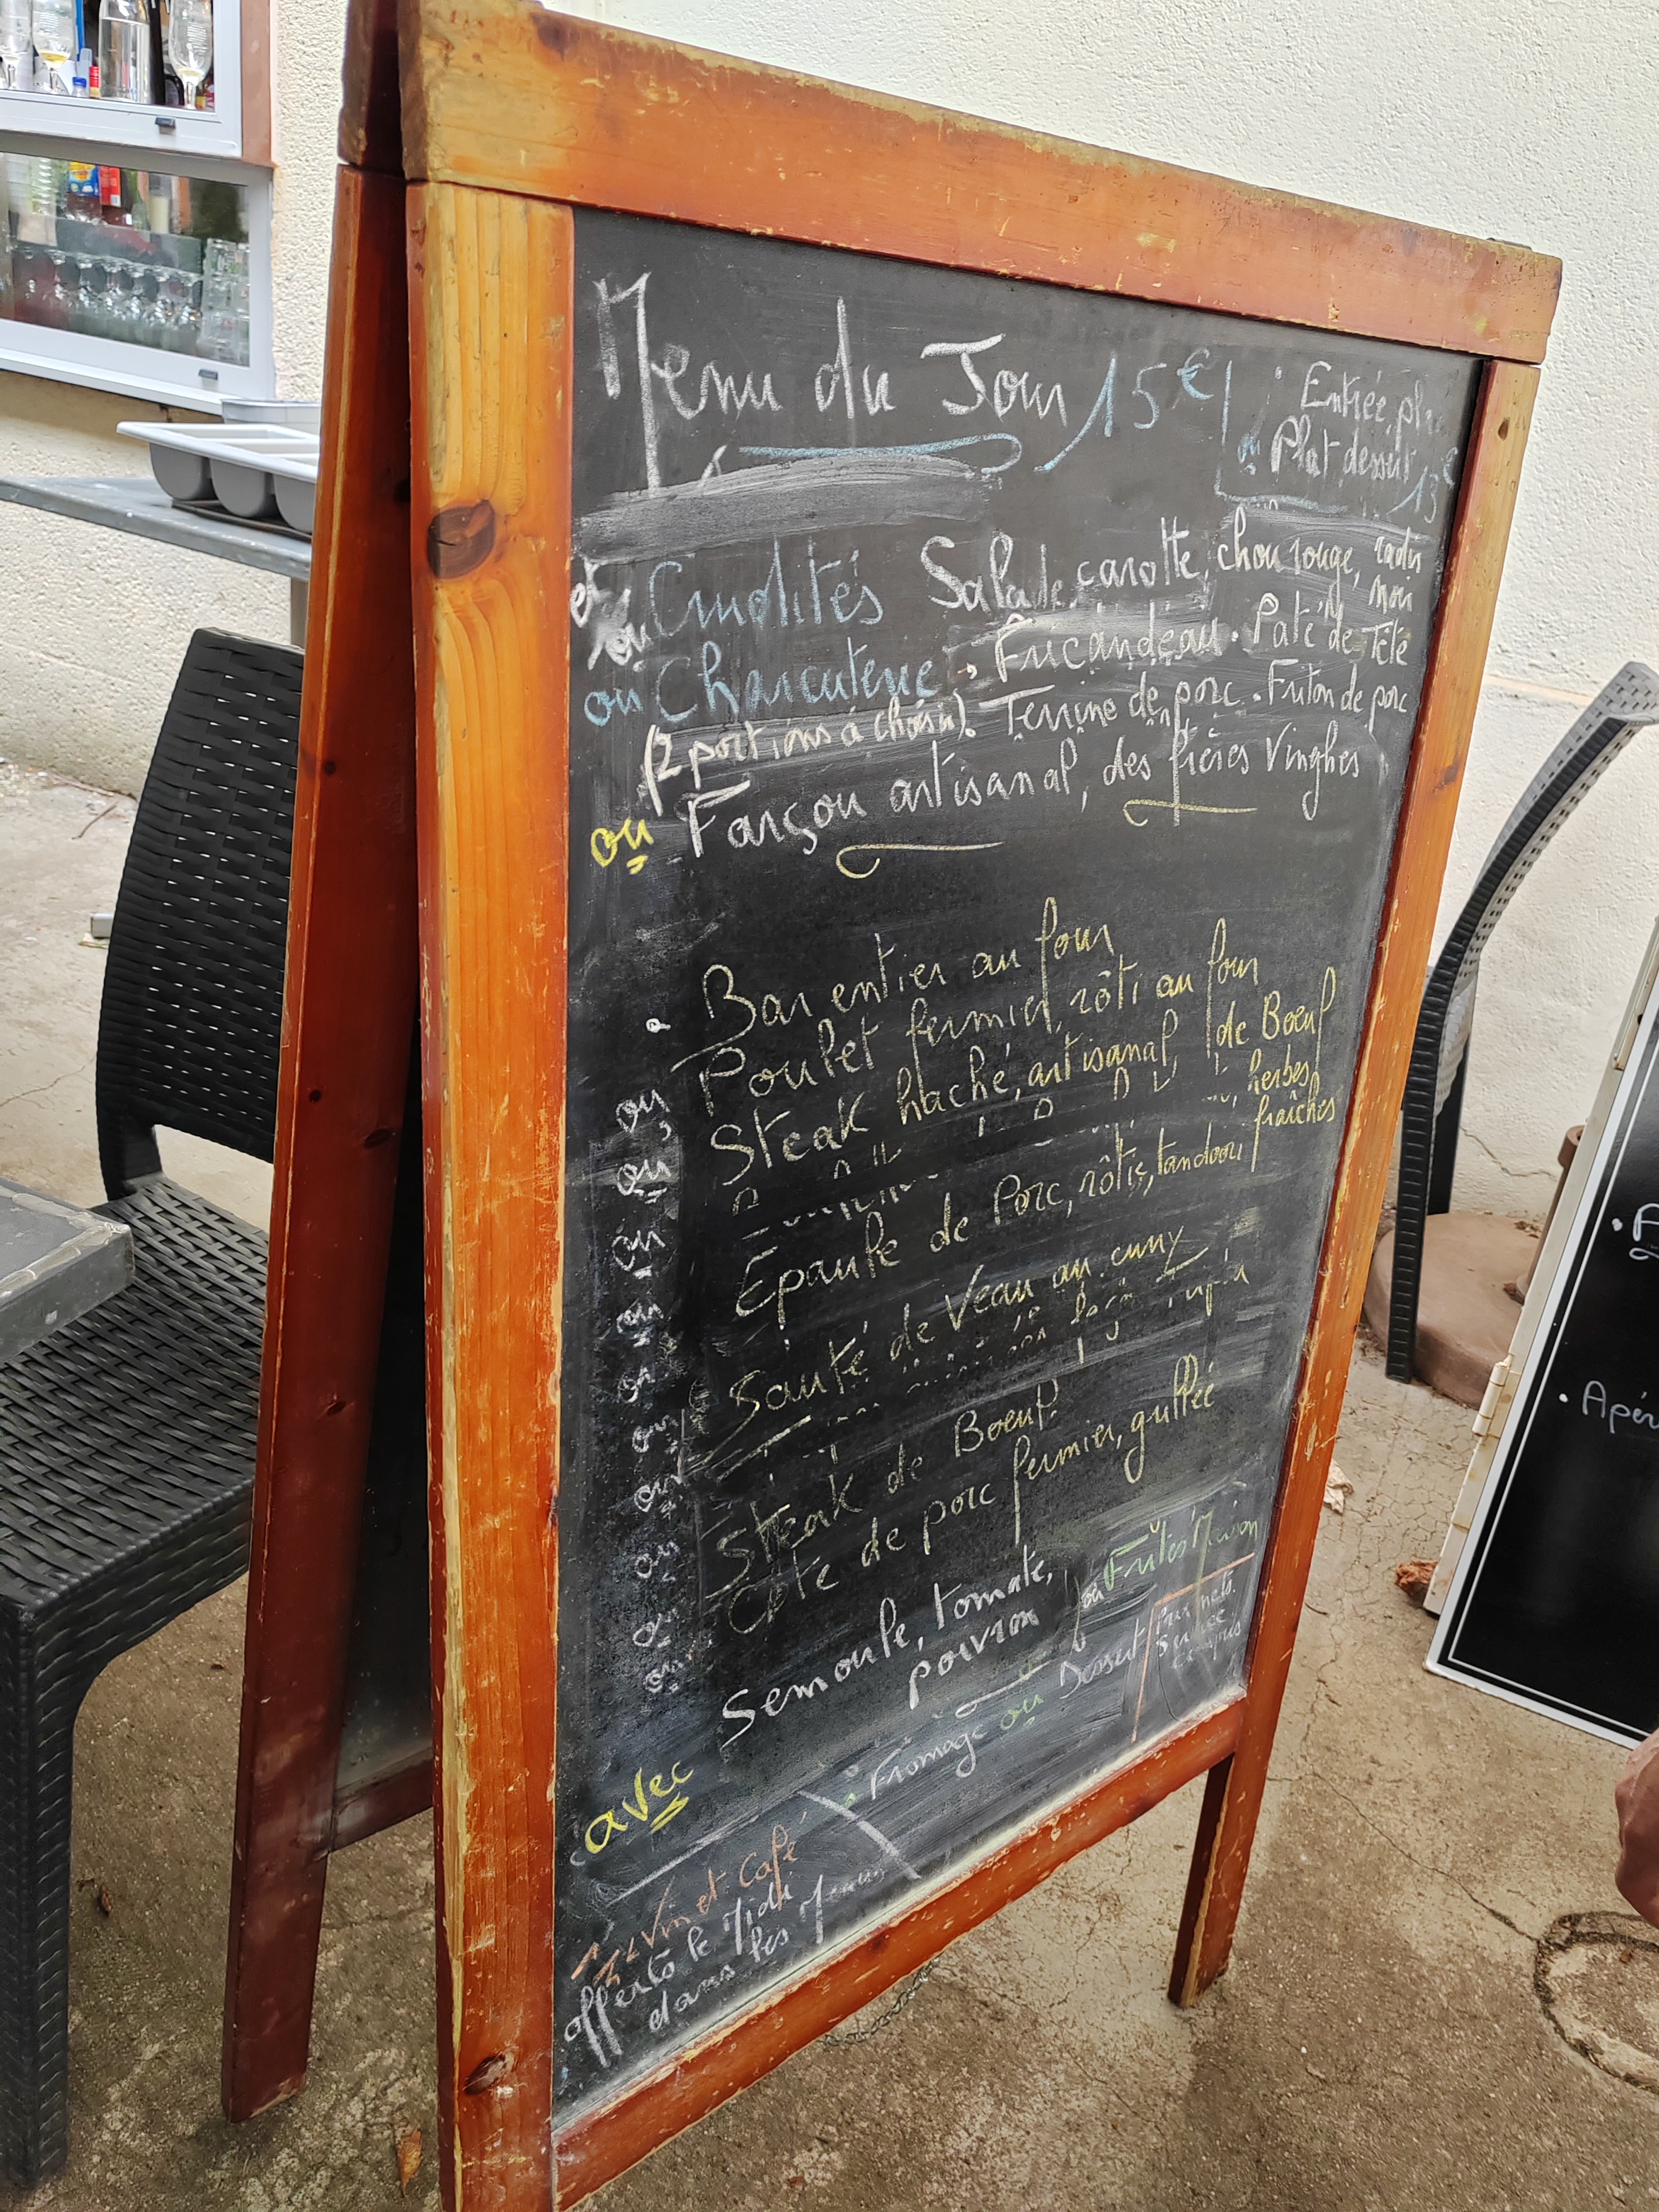 Menu du Jour 15€
Entrée, pl
ou Plat dessert
13€
et
ou Crudités Salade, carotte, chou rouge, radis
noir
ou Charcuterie → Fricandeau. Paté de Tête
(2 portions à choisir). Terrine de porc. Friton de porc
ou Farçou artisanal, des frères Vinghes
. Bar entier au four
ou Poulet fermier, rôti au four
ou Steak haché, artisanal, de Boeuf
ou herbes
fraîches
Epaule de Porc, rôtie, tandoori
ou
Sauté de Veau au curry
ou
ou
Steak de Boeuf
ou
Côte de porc fermier, grillée
ou
avec Semoule, tomate,
poivron
ou Frites Maison
Fromage ou Dessert
Prix nets
Service
compris
Vin et Café
offerts le Midi
dans les Menus
. Apér